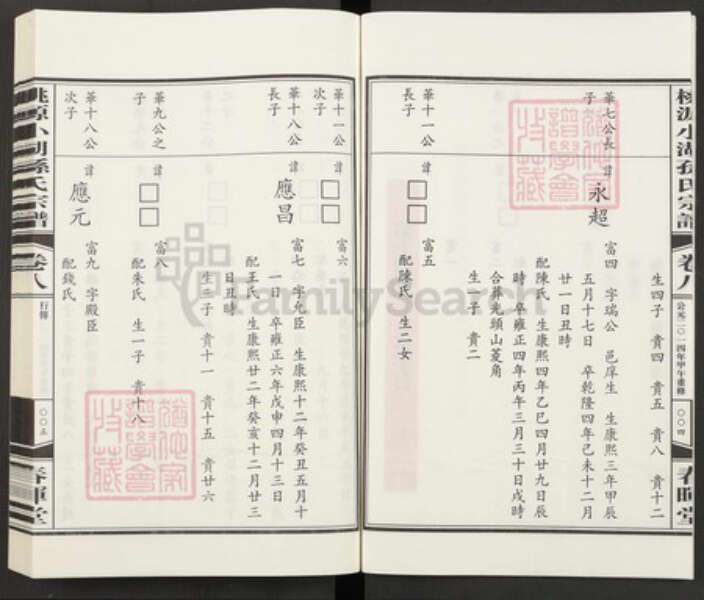 桃源小湖孫氏宗譜
卷八
公元二〇一四年甲午重修
〇〇四
春暉堂
生四子 貴四 貴五 貴八 貴十二
華七公長子
諱永超
富四 字瑞公 邑庠生 生康熙三年甲辰
五月十七日 卒乾隆四年己未十二月
廿一日丑時
配陳氏 生康熙四年乙巳四月廿九日辰
時 卒雍正四年丙午三月三十日戌時
合葬光頭山菱角
生一子 貴二
華十一公長子
諱□□
富五
配陳氏 生二女
華十一公次子
諱□□
富六
華十八公長子
諱應昌
富七 字允臣 生康熙十二年癸丑五月十
一日 卒雍正六年戊申四月十三日
配王氏 生康熙廿二年癸亥十二月廿三
日丑時
生三子 貴十一 貴十五 貴廿六
華九公之子
諱□□
富八
配朱氏 生一子 貴十八
華十八公次子
諱應元
富九 字殿臣
配錢氏
桃源小湖孫氏宗譜
卷八
行傳
〇〇五
春暉堂
FamilySearch